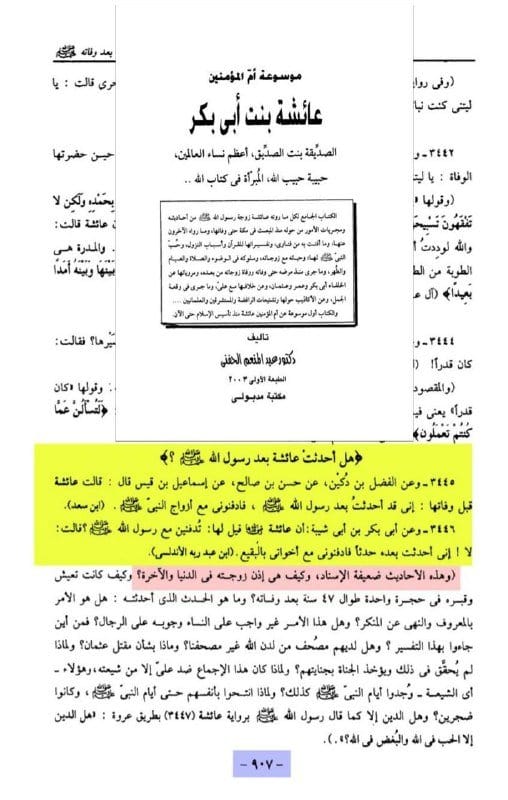 بعد وفاته ﷺ
(وفى رواي
حرى قالت : يا
ليتنى كنت نبا
٣٤٤٢ـ و
حين حضرتها
الوفاة : يا ليت
(وقولها «
بِحَمْدِهِ وَلَكِن لا
تَفْقَهُونَ تَسْبِيحَ
عائشة قالت:
والله لوددتُ أ
والمدرة هى
الطوبة من الط
بَيْنَهَا وَبَيْنَهُ أَمَدًا
بَعِيدًا﴾ (آل ع
٣٤٤٤ ـ و
كان قدراً! (ا
(والمقصود
وقولها «كان
قدراً» يعنى في
﴿لَتُسْأَلُنَّ عَمَّا
كُنتُمْ تَعْمَلُونَ﴾
موسوعة أمّ المؤمنين
عائشة بنت أبى بكر
الصدِّيقة بنت الصدِّيق، أعظم نساء العالمين،
حبيبة حبيب الله، المُبرأة فى كتاب الله ..
الكتاب الجامع لكل ما روته عائشة زوجة رسول الله ﷺ من أحاديثه
ومجريات الأمور من حوله منذ المبعث فى مكة حتى وفاتها، وما رواه الآخرون
عنها، وما أفتت به من فتاوى، وتفسيراتها للقرآن وأسباب النزول، وحبّ
النبى ﷺ لها، وحياته مع زوجاته، وسلوكه فى الوضوء والصلاة والصيام
والطُهر، وما جرى منذ مرضه حتى وفاته ووفاة زوجاته من بعده، ومروياتها عن
الخلفاء أبى بكر وعمر وعثمان، وعن خلافها مع علىّ، وما جرى فى وقعة
الجمل، وعن الأكاذيب حولها وتشنيعات الرافضة والمستشرقين والعلمانيين ....
والكتاب أول موسوعة عن أم المؤمنين عائشة منذ تأسيس الإسلام حتى الآن.
تأليف
دكتور عبد المنعم الحفنى
الطبعة الأولى ٢٠٠٣
مكتبة مدبولى
﴿هل أحدثتْ عائشة بعد رسول الله ﷺ ؟﴾
٣٤٤٥ـ وعن الفضل بن دُكَيْن، عن حسن بن صالح، عن إسماعيل بن قيس قال : قالت عائشة
قبل وفاتها : إنى قد أحدثتُ بعد رسول الله ﷺ ، فادفنونى مع أزواج النبىّ ﷺ . (ابن سعد).
٣٤٤٦ـ وعن أبى بكر بن أبى شيبة: أن عائشة قيل لها: تُدفنين مع رسول الله ﷺ ؟ قالت:
لا ! إنى أحدثت بعده حدثاً فادفنونى مع أخواتى بالبقيع. (ابن عبد ربه الأندلسى).
(وهذه الأحاديث ضعيفة الإسناد، وكيف هى إذن زوجته فى الدنيا والآخرة؟ وكيف كانت تعيش
وقبره فى حجرة واحدة طوال ٤٧ سنة بعد وفاته؟ وما هو الحدث الذى أحدثته : هل هو الأمر
بالمعروف والنهى عن المنكر؟ وهل هذا الأمر غير واجب على النساء وجوبه على الرجال؟ فمن أين
جاءوا بهذا التفسير ؟ وهل لديهم مصُحف من لدن الله غير مصحفنا؟ وماذا بشأن مقتل عثمان؟ ولماذا
لم يُحقَّق فى ذلك ويؤخذ الجناة بجنايتهم؟ ولماذا كان هذا الإجماع ضد علىّ إلا من شيعته، وهؤلاء ـ
أى الشيعـة ـ وُجدوا أيام النبىّ ﷺ كذلك؟ ولماذا انتحوا بأنفسهم حتى أيام النبىّ ﷺ ، وكانوا
ضجرين؟ وهل الدين إلا كما قال رسول الله ﷺ برواية عائشة (٣٤٤٧) بطريق عروة : «هل الدين
إلا الحب فى الله والبُغض فى الله؟» .).
- ٩٠٧ -